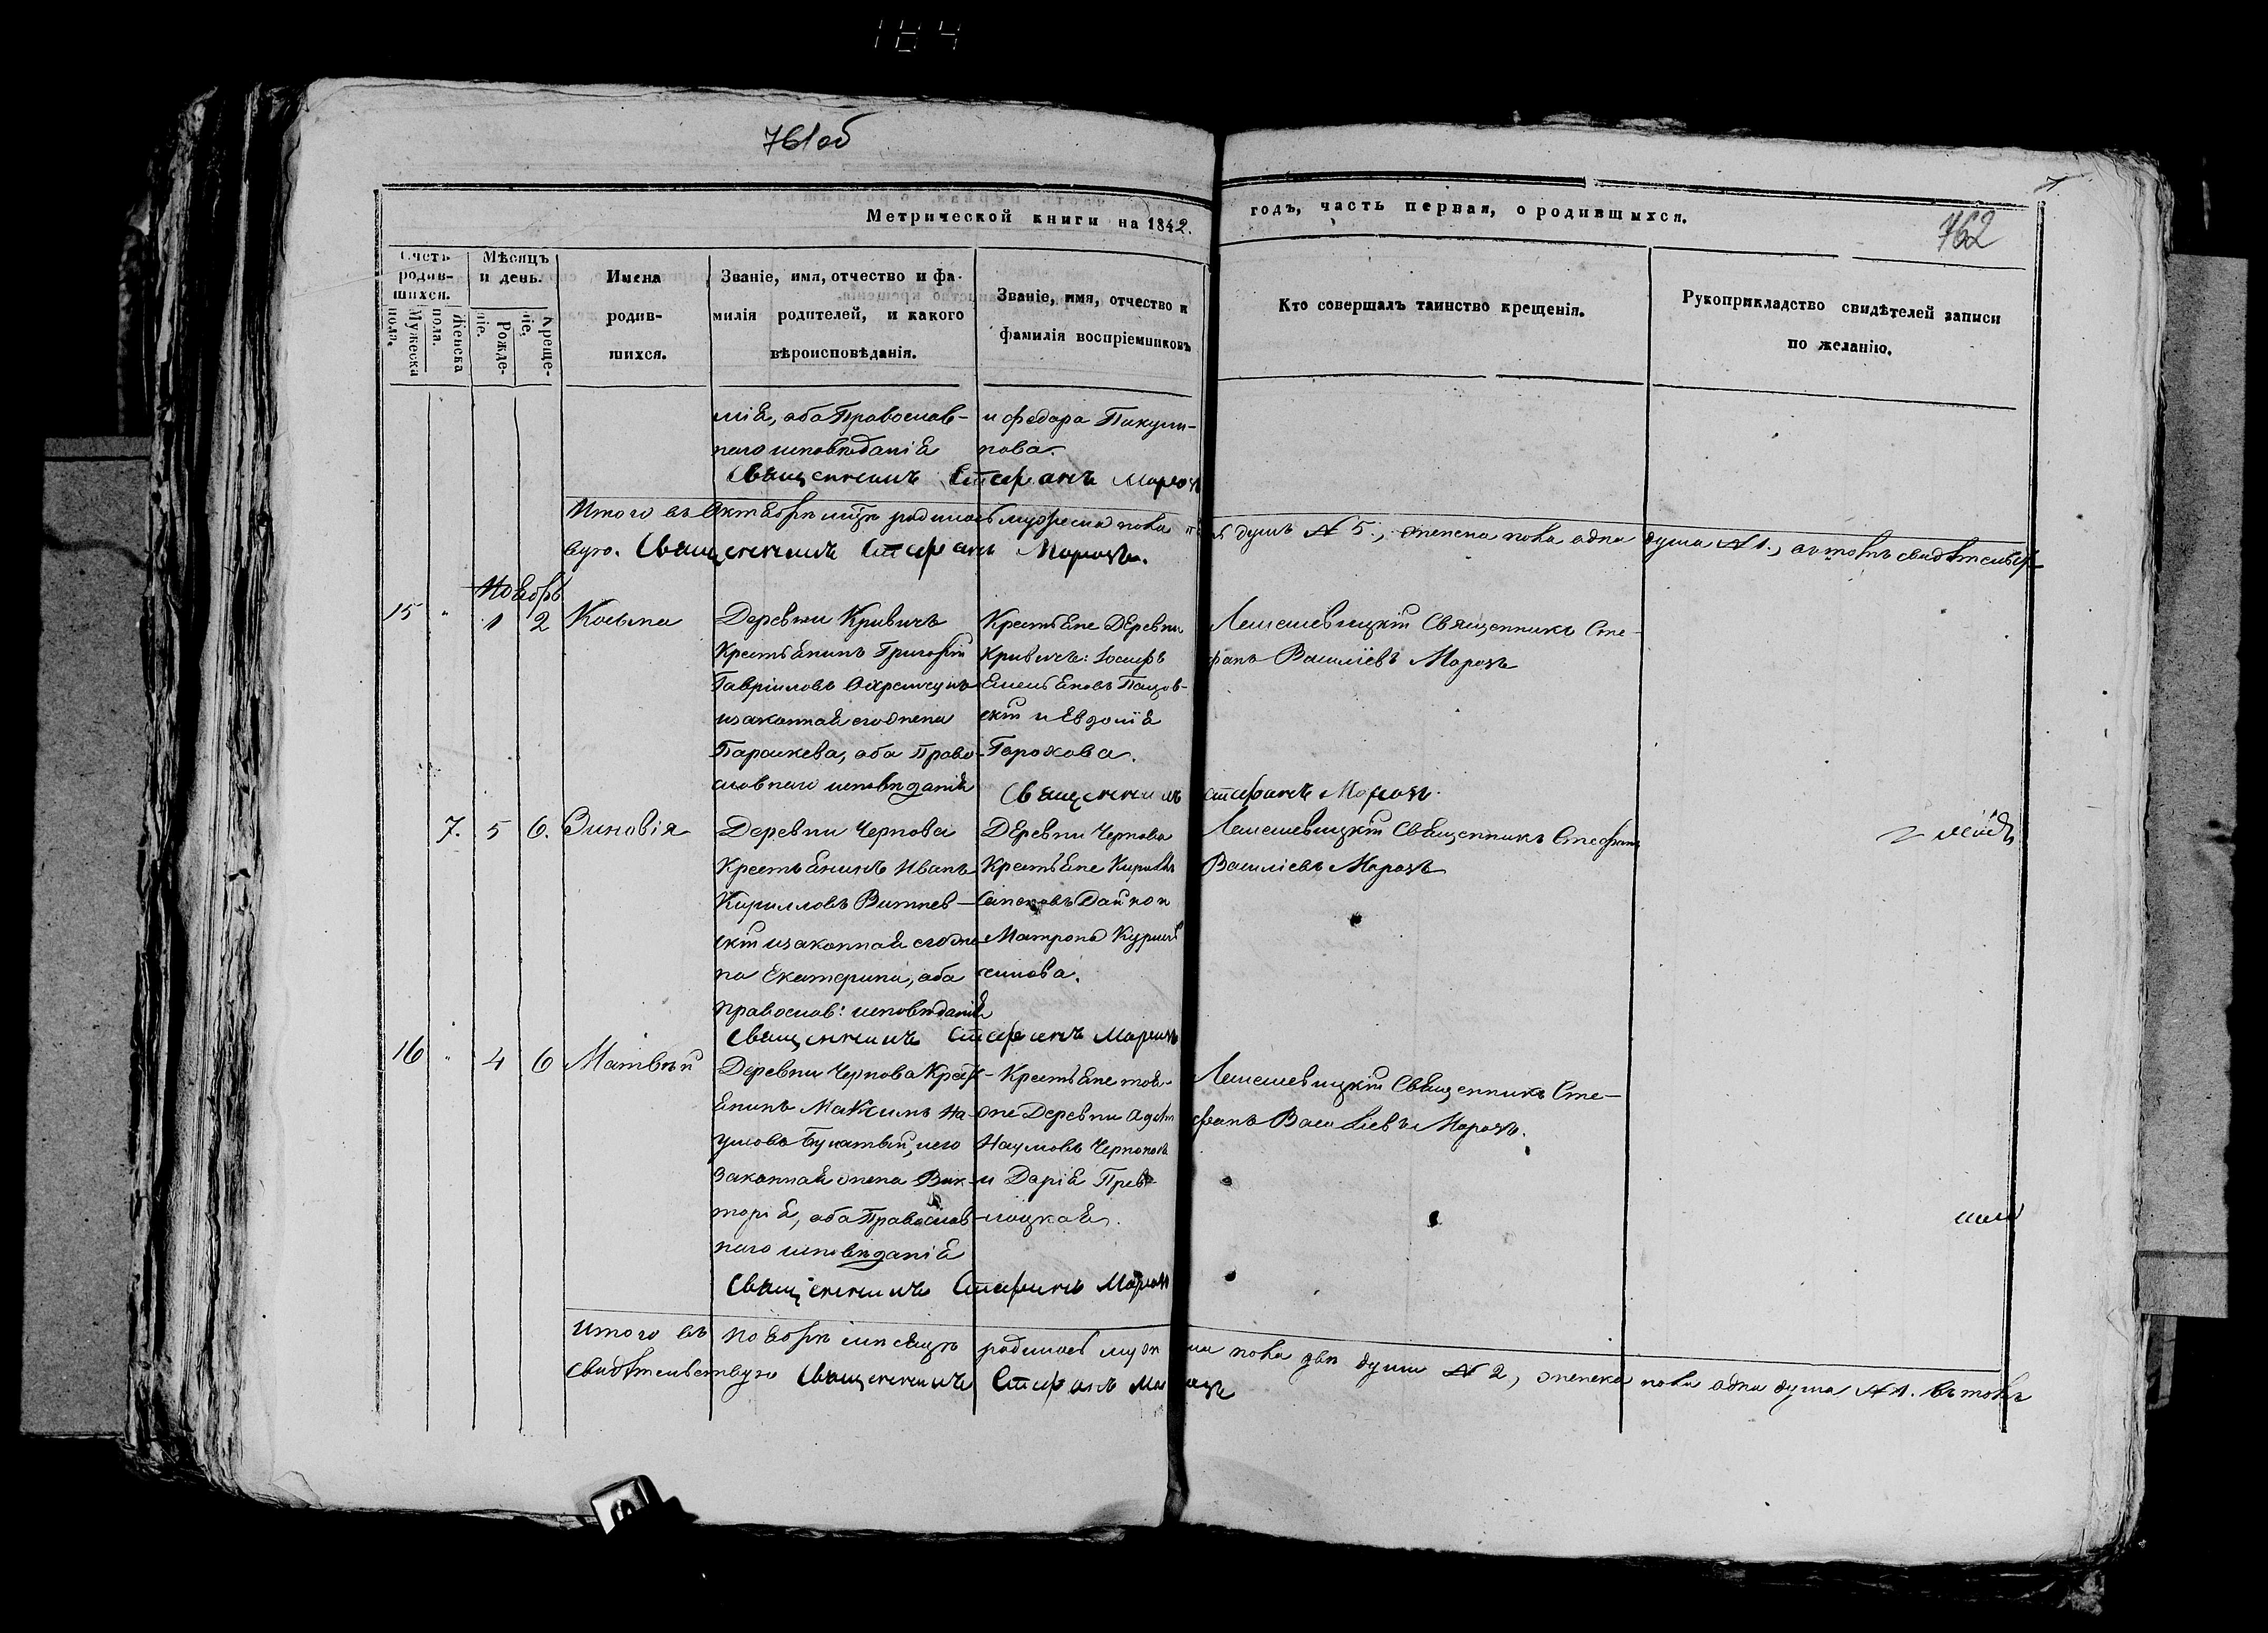 184
761об
Метрической книги на 1842.
годъ, часть первая, о родившихся.
762
Счетъ родив-шихся.
Мужеска пола.
Женска пола.
Мѣсяцъ и день.
Рожде-ніе.
Креще-ніе.
Имена родив-шихся.
Званіе, имя, отчество и фа-милія родителей, и какого вѣроисповѣданія.
Званіе, имя, отчество и фамилія воспріемниковъ
Кто совершалъ таинство крещенія.
Рукоприкладство свидѣтелей записи по желанію.
мія, оба Православ-
наго исповѣданія
и Федора
нова.
Священникъ Стефанъ Морозъ
Итого въ Октябрѣ м҃цѣ родилось мужеска пола душъ № 5., женска пола одна душа № 1., въ томъ свидѣтельст-
вую. Священникъ Стефанъ Морозъ.
Ноябрь
15 " 1 2 Косьма
Деревни Кривичъ
Крестьянинъ Григорій
Гавріиловъ
и законная его жена
Параскева, оба Право-
славнаго исповѣданія
Крестьяне Деревни
Кривичъ: Іосифъ
Емельяновъ
скій и Евдокія
Горохова.
Священникъ Стефанъ Морозъ.
Лемешевицкій Священникъ Сте-
фанъ Василіевъ Морозъ
7. 5 6. Зиновія
Деревни Чернова
Крестьянинъ Иванъ
Кирилловъ Витнев-
скій и законная его же-
на Екатерина, оба
православ: исповѣданія
Деревни Чернова
Крестьяне Кириллъ
Матрона
Священникъ Стефанъ Морозъ
Лемешевицкій Священникъ Стефанъ
Василіевъ Морозъ
16 " 4 6 Матвѣй
Деревни Чернова Крест-
янинъ Максимъ На-
умовъ и его
законная жена Вик-
торія, оба Православ-
наго исповѣданія
Крестьяне той-
же Деревни
Наумовъ
и Дарія
Священникъ Стефанъ Морозъ
Лемешевицкій Священникъ Сте-
фанъ Василіевъ Морозъ.
Итого въ Ноябрѣ мѣсяцѣ родилось муже ска пола двѣ души № 2, женска пола одна душа № 1. въ томъ
свидѣтельствую Священникъ Стефанъ Морозъ